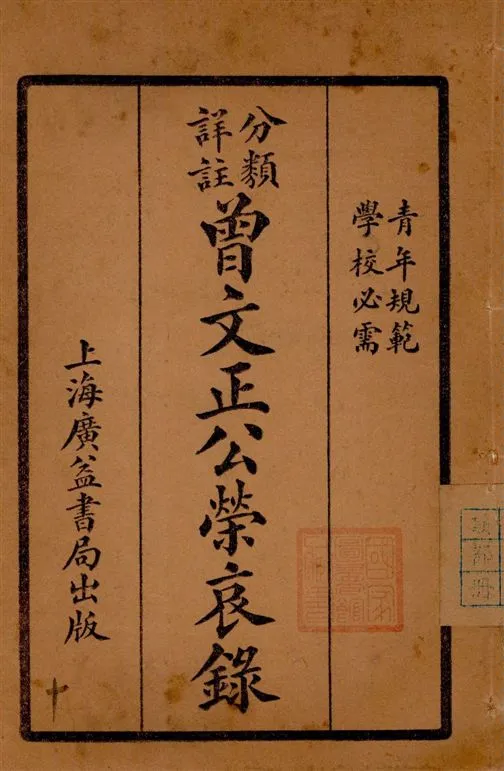 青年規範
學校必需
分類
詳註
曾文正公榮哀錄
上海廣益書局出版
十
國家
圖書館